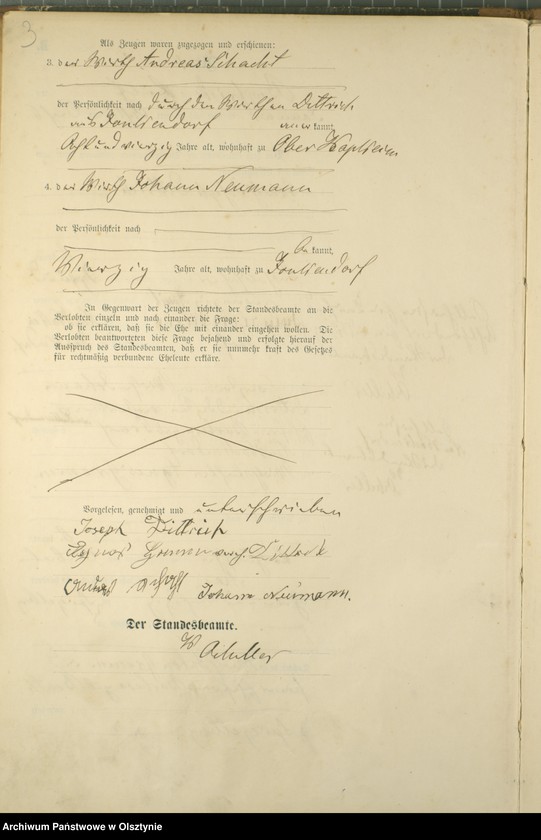 3
Als Zeugen waren zugezogen und erschienen:
3. der Wirth Andreas Schacht
der Persönlichkeit nach durch den Dittrich
aus kannt,
Acht und vierzig Jahre alt, wohnhaft zu Ober Kapkeim
4. der Wirth Johann Neumann
der Persönlichkeit nach
kannt,
Vierzig Jahre alt, wohnhaft zu
In Gegenwart der Zeugen richtete der Standesbeamte an die
Verlobten einzeln und nach einander die Frage:
ob sie erklären, daß sie die Ehe mit einander eingehen wollen. Die
Verlobten beantworteten diese Frage bejahend und erfolgte hierauf der
Ausspruch des Standesbeamten, daß er sie nunmehr kraft des Gesetzes
für rechtmäßig verbundene Eheleute erkläre.
Vorgelesen, genehmigt und unterschrieben
Joseph Dittrich
Agnes Dittrich
Johann Neumann.
Der Standesbeamte.
Archiwum Państwowe w Olsztynie